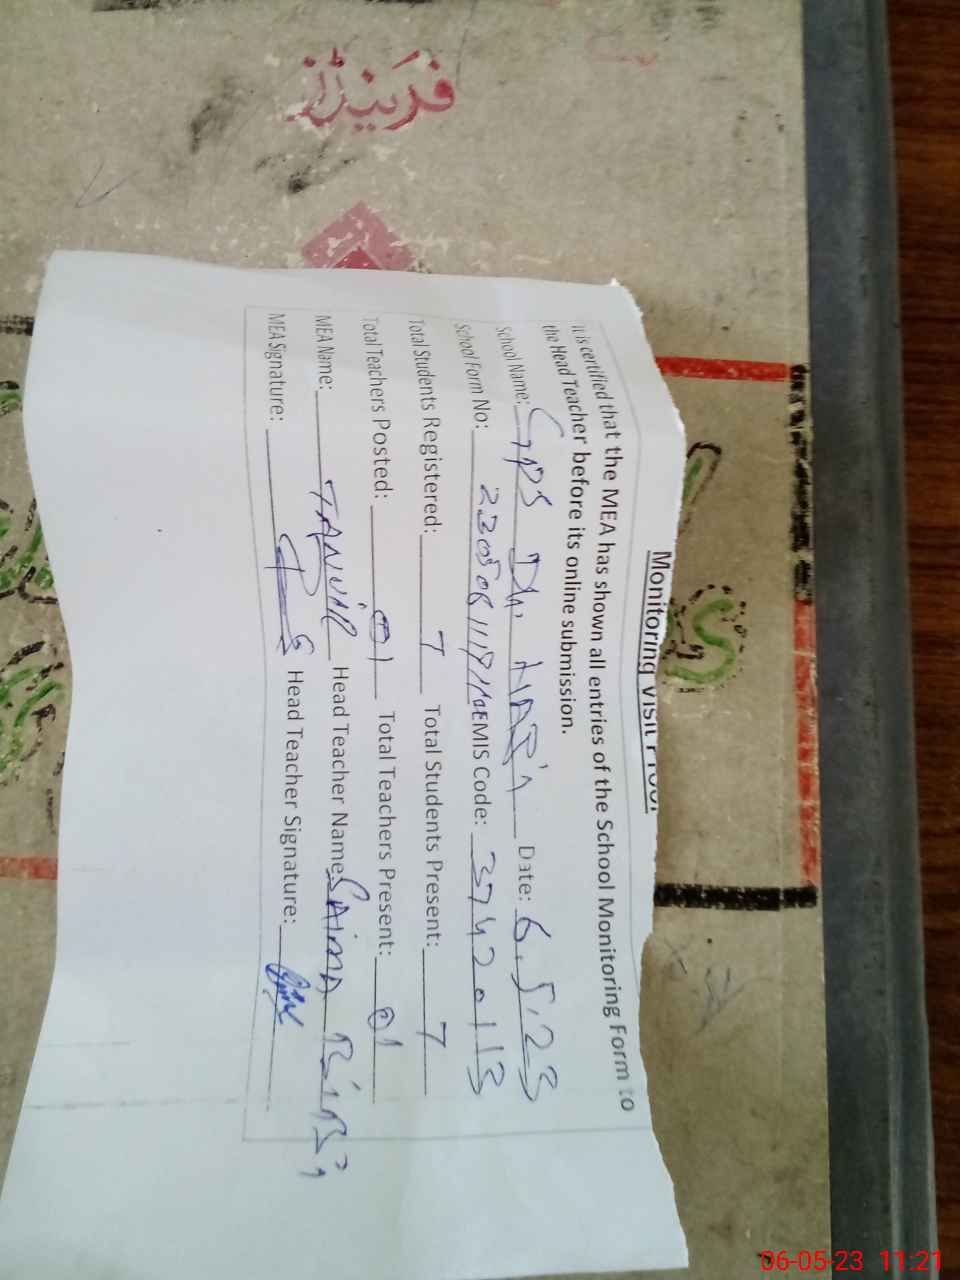 فرینڈز
Monitoring Visit Proof
It is certified that the MEA has shown all entries of the School Monitoring Form to
the Head Teacher before its online submission.
School Name: GPS Dh. HABiA Date: 6.5.23
School Form No: EMIS Code: 37420113
Total Students Registered: 7 Total Students Present: 7
Total Teachers Posted: 01 Total Teachers Present: 01
MEA Name: TANVIR Head Teacher Name: SAIMA BiBi
MEA Signature: Head Teacher Signature:
06-05-23 11:21